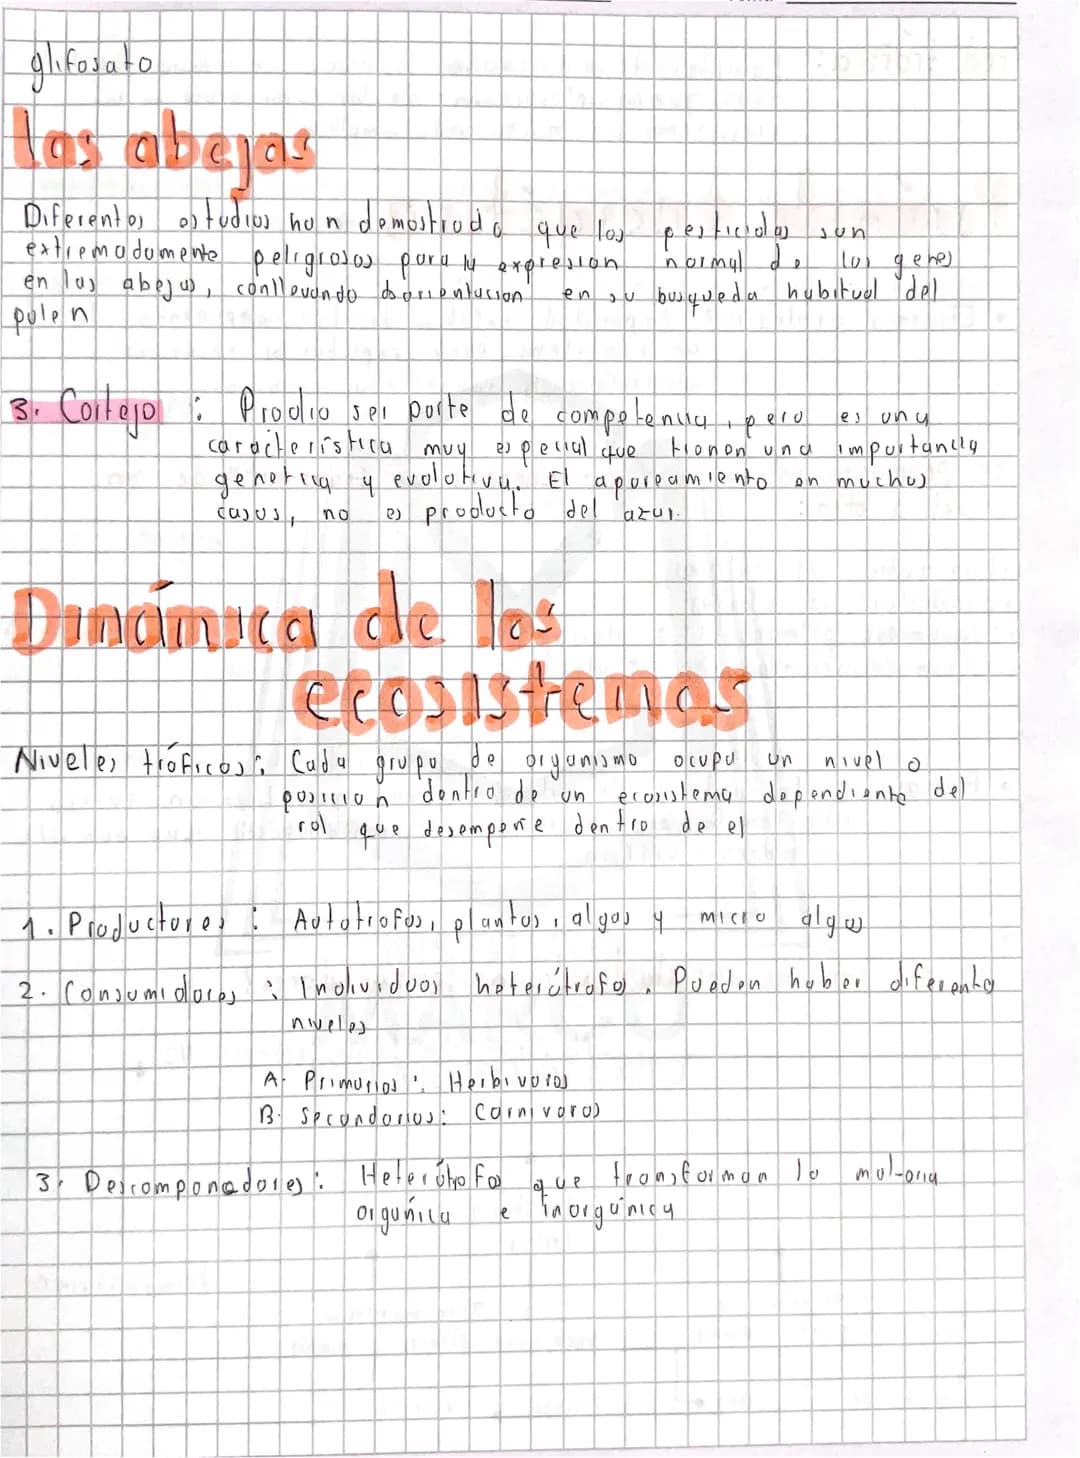 glifosato
las abejas
Diferentes estudios han demostrado que los pesticidas son
extremadamente peligrosos para la expresion normal de los genes
en las abejas, conllevando desorientacion en su busqueda habitual del
polen
3. Cortejo : Prodio ser parte de competencia, pero es una
característica muy especial que tienen una importancia
genetica y evolotiva. El apareamiento en muchos
casos, no es producto del azar.
Dinámica de los
ecosistemas
Niveles tróficos: Cada grupo de organismo ocupa un nivel o
posicion dentro de un ecosistema dependiente del
rol que desempeñe dentro de el
1. Productores : Autotrofos, plantas, algas y micro algas
2. Consumidores : Individuos heterótrofos. Pueden haber diferentes
niveles
A. Primarios : Herbivoros
B. Secundarios: Carnivoros
3. Descomponedores: Heterótrofos que transforman la materia
orgánica e inorgánica